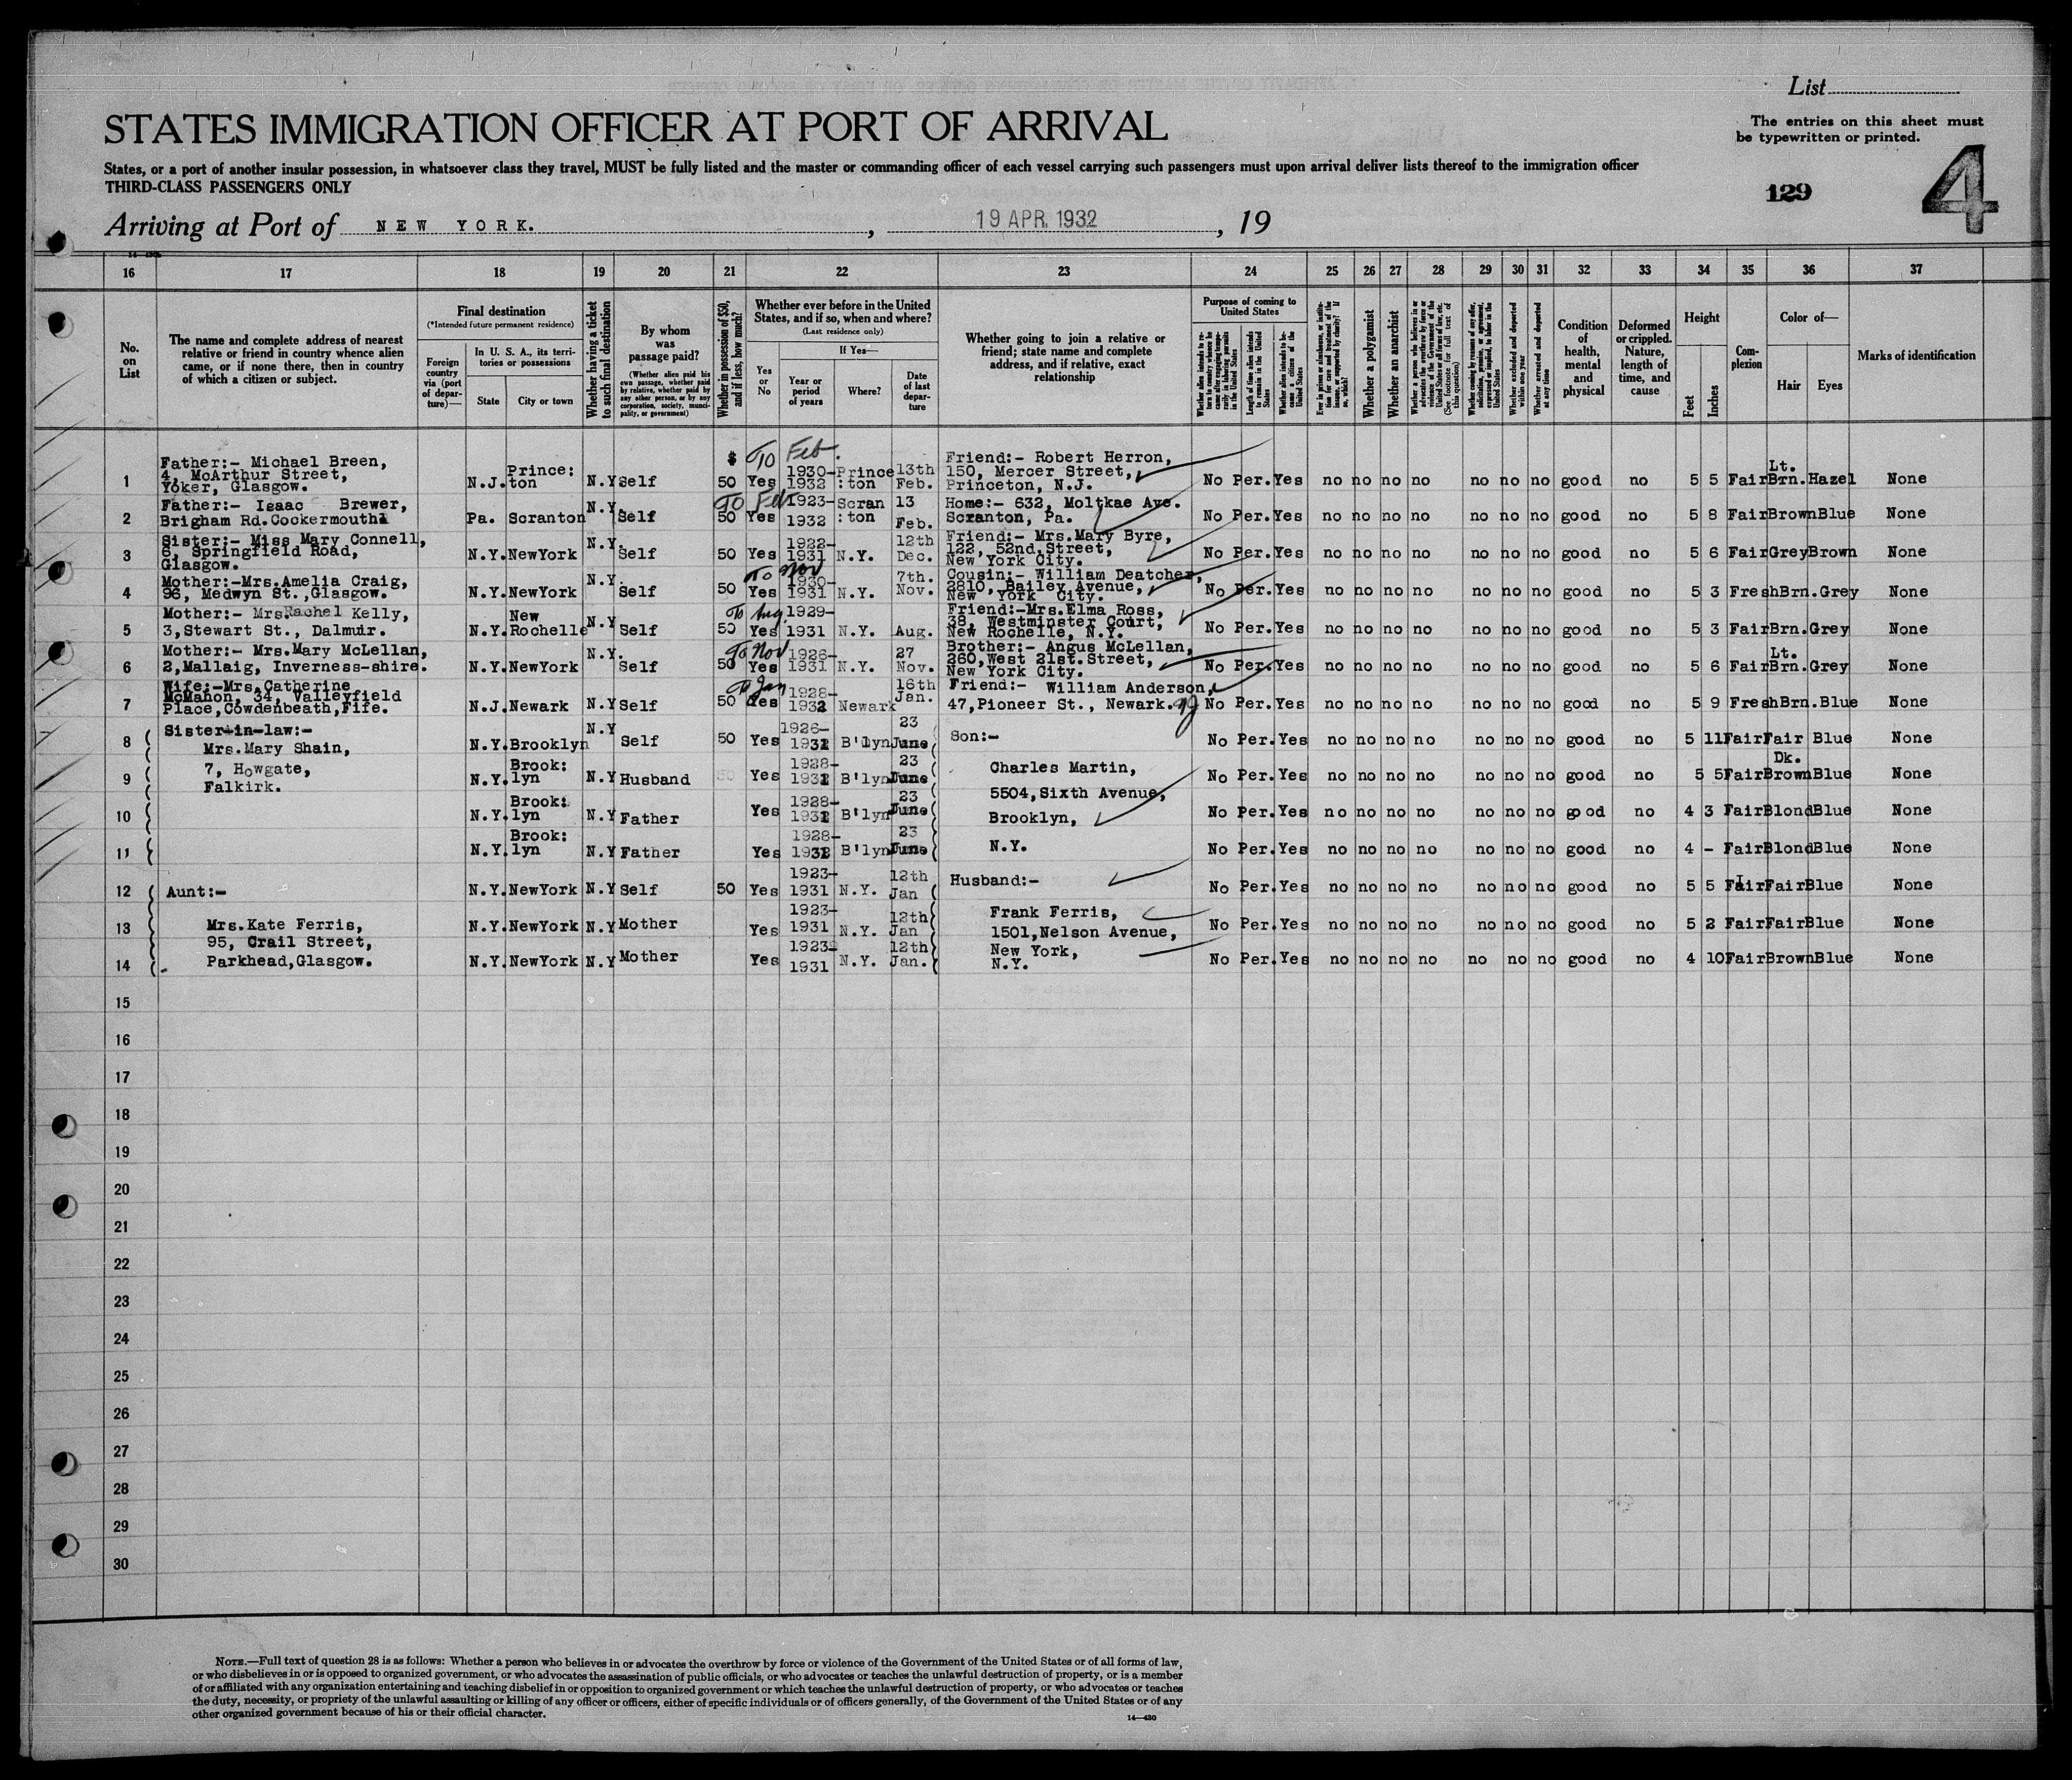 List
STATES IMMIGRATION OFFICER AT PORT OF ARRIVAL
The entries on this sheet must
be typewritten or printed.
States, or a port of another insular possession, in whatsoever class they travel, MUST be fully listed and the master or commanding officer of each vessel carrying such passengers must upon arrival deliver lists thereof to the immigration officer
THIRD-CLASS PASSENGERS ONLY
129
4
Arriving at Port of NEW YORK. , 19 APR. 1932 , 19
16 17 18 19 20 21 22 23 24 25 26 27 28 29 30 31 32 33 34 35 36 37
No. on List
The name and complete address of nearest relative or friend in country whence alien came, or if none there, then in country of which a citizen or subject.
Final destination
(*Intended future permanent residence)
Foreign country via (port of departure)—
In U. S. A., its territories or possessions
State City or town
Whether having a ticket to such final destination
By whom was passage paid?
(Whether alien paid his own passage, whether paid by relative, whether paid by any other person, or by any corporation, society, municipality, or government)
Whether in possession of $50, and if less, how much?
Whether ever before in the United States, and if so, when and where?
(Last residence only)
If Yes—
Yes or No Year or period of years Where? Date of last departure
Whether going to join a relative or friend; state name and complete address, and if relative, exact relationship
Purpose of coming to United States
Length of time alien intends to remain in the United States
Whether alien intends to become a citizen of the United States
Whether a polygamist
Whether an anarchist
Whether excluded and deported within one year
Whether arrested and deported at any time
Condition of health, mental and physical
Deformed or crippled. Nature, length of time, and cause
Height
Feet Inches
Complexion
Color of—
Hair Eyes
Marks of identification
1 Father:- Michael Breen, 4, McArthur Street, Yoker, Glasgow. N.J. Prince: ton N.Y Self $ 50 To Feb. Yes 1930- 1932 Prince :ton 13th Feb. Friend:- Robert Herron, 150, Mercer Street, Princeton, N.J. No Per. Yes no no no no no no no good no 5 5 Fair Lt. Brn. Hazel None
2 Father:- Isaac Brewer, Brigham Rd. Cockermouth Pa. Scranton N.Y. Self 50 To Feb Yes 1923- 1932 Scran :ton 13 Feb. Home:- 632, Moltkae Ave. Scranton, Pa. No Per. Yes no no no no no no no good no 5 8 Fair Brown Blue None
3 Sister:- Miss Mary Connell, 6, Springfield Road, Glasgow. N.Y. NewYork N.Y. Self 50 Yes 1922- 1931 N.Y. 12th Dec. Friend:- Mrs.Mary Byre, 122, 52nd.Street, New York City. No Per. Yes no no no no no no no good no 5 6 Fair Grey Brown None
4 Mother:-Mrs.Amelia Craig, 96, Medwyn St.,Glasgow. N.Y. NewYork N.Y. Self 50 To Nov Yes 1930- 1931 N.Y. 7th. Nov. Cousin:- William Deatcher, 2810, Bailey Avenue, New York City. No Per. Yes no no no no no no no good no 5 3 Fresh Brn. Grey None
5 Mother:- Mrs.Rachel Kelly, 3,Stewart St., Dalmuir. N.Y. New Rochelle N.Y Self 50 To Aug. Yes 1929- 1931 N.Y. Aug. Friend:-Mrs.Elma Ross, 38, Westminster Court, New Rochelle, N.Y. No Per. Yes no no no no no no no good no 5 3 Fair Brn. Grey None
6 Mother:- Mrs.Mary McLellan, 2,Mallaig, Inverness-shire. N.Y. NewYork N.Y. Self 50 To Nov Yes 1926- 1931 N.Y. 27 Nov. Brother:- Angus McLellan, 260,West 21st.Street, New York City. No Per. Yes no no no no no no no good no 5 6 Fair Lt. Brn. Grey None
7 Wife:-Mrs.Catherine McMahon, 34, Valleyfield Place,Cowdenbeath,Fife. N.J. Newark N.Y Self 50 To Jan Yes 1928- 1932 Newark 16th Jan. Friend:- William Anderson, 47,Pioneer St., Newark. NJ No Per. Yes no no no no no no no good no 5 9 Fresh Brn. Blue None
8 Sister-in-law:- Mrs.Mary Shain, N.Y. Brooklyn N.Y Self 50 Yes 1926- 1931 B'lyn 23 June Son:- No Per. Yes no no no no no no no good no 5 11 Fair Fair Blue None
9 7, Howgate, Falkirk. N.Y. Brook: lyn N.Y Husband 50 Yes 1928- 1931 B'lyn 23 June Charles Martin, 5504,Sixth Avenue, No Per. Yes no no no no no no no good no 5 5 Fair Dk. Brown Blue None
10 N.Y. Brook: lyn N.Y Father Yes 1928- 1931 B'lyn 23 June Brooklyn, No Per. Yes no no no no no no no good no 4 3 Fair Blond Blue None
11 N.Y. Brook: lyn N.Y Father Yes 1928- 1931 B'lyn 23 June N.Y. No Per. Yes no no no no no no no good no 4 - Fair Blond Blue None
12 Aunt:- N.Y. NewYork N.Y Self 50 Yes 1923- 1931 N.Y. 12th Jan Husband:- No Per. Yes no no no no no no no good no 5 5 Fair Fair Blue None
13 Mrs.Kate Ferris, 95, Crail Street, N.Y. NewYork N.Y Mother Yes 1923- 1931 N.Y. 12th Jan Frank Ferris, 1501,Nelson Avenue, No Per. Yes no no no no no no no good no 5 2 Fair Fair Blue None
14 Parkhead,Glasgow. N.Y. NewYork N.Y Mother Yes 1923- 1931 N.Y. 12th Jan. New York, N.Y. No Per. Yes no no no no no no no good no 4 10 Fair Brown Blue None
15
16
17
18
19
20
21
22
23
24
25
26
27
28
29
30
NOTE.—Full text of question 28 is as follows: Whether a person who believes in or advocates the overthrow by force or violence of the Government of the United States or of all forms of law,
or who disbelieves in or is opposed to organized government, or who advocates the assassination of public officials, or who advocates or teaches the unlawful destruction of property, or is a member
of or affiliated with any organization entertaining and teaching disbelief in or opposition to organized government or which teaches the unlawful destruction of property, or who advocates or teaches
the duty, necessity, or propriety of the unlawful assaulting or killing of any officer or officers, either of specific individuals or of officers generally, of the Government of the United States or of any
other organized government because of his or their official character.
14—430